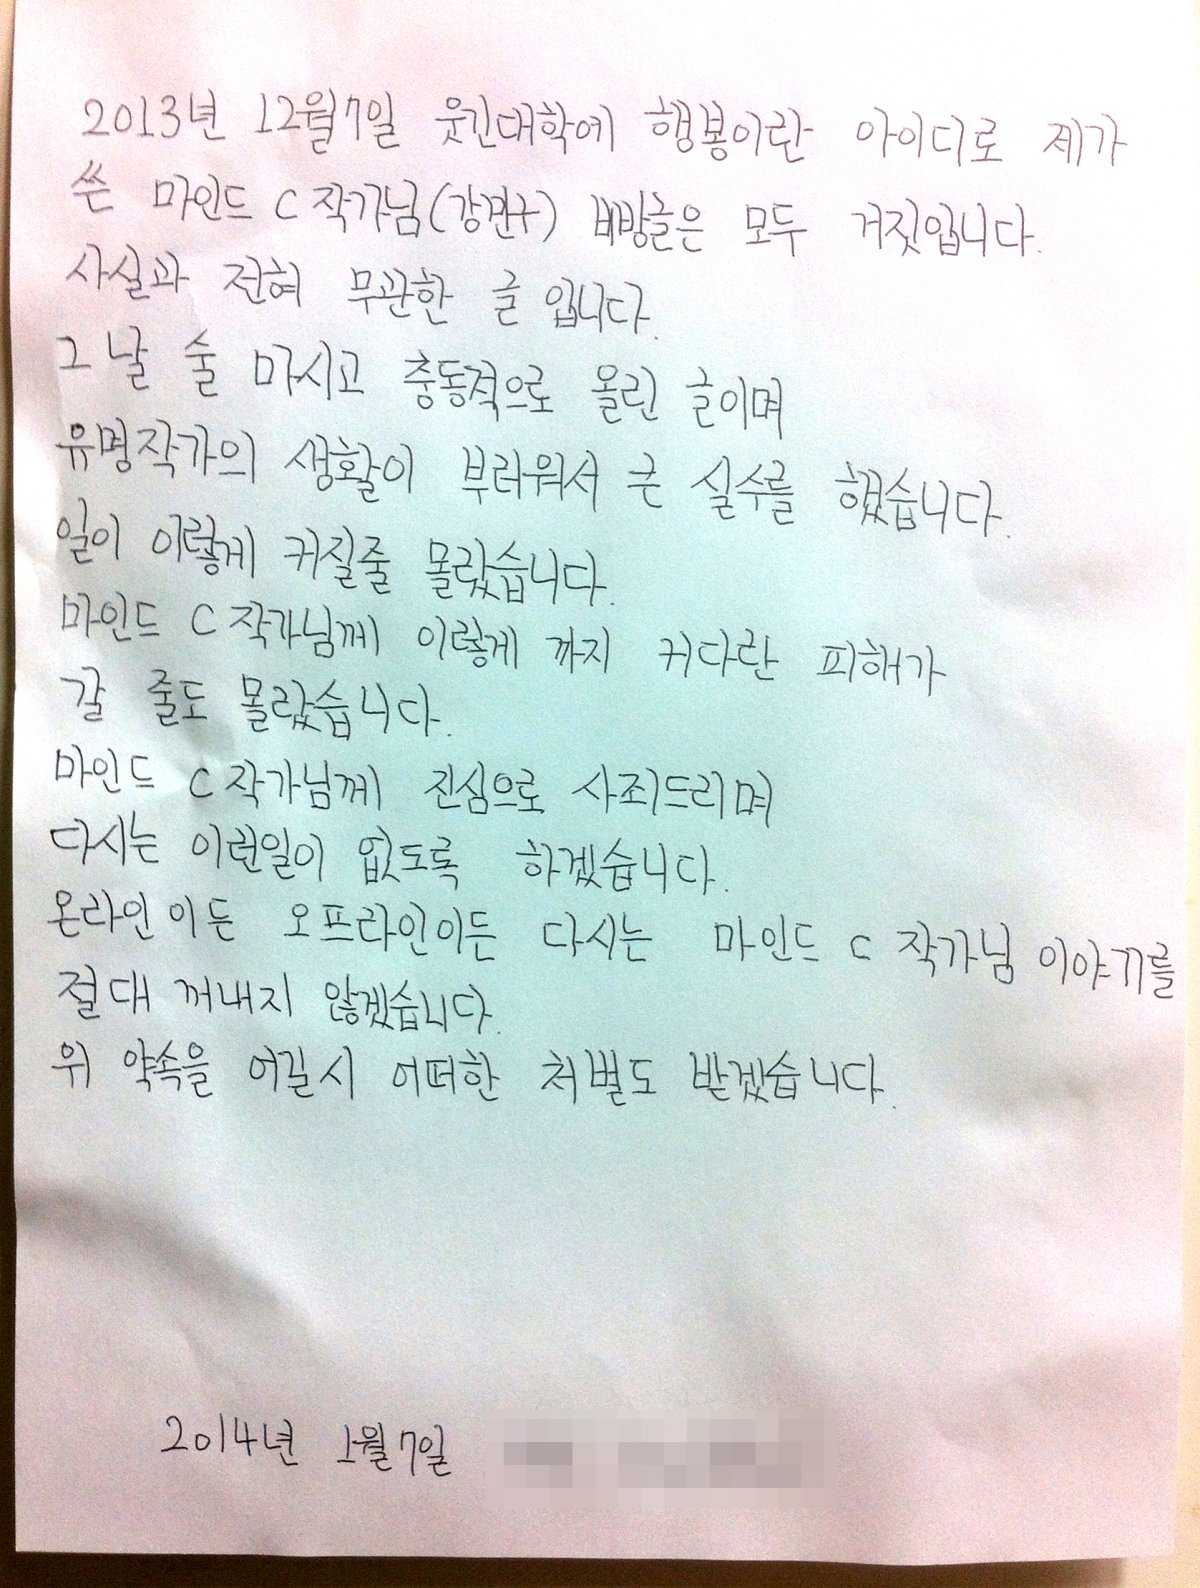 2013년 12월7일 웃긴대학에 행봉이란 아이디로 제가
쓴 마인드 C 작가님(강민구) 비방글은 모두 거짓입니다.
사실과 전혀 무관한 글 입니다.
그 날 술 마시고 충동적으로 올린 글이며
유명작가의 생활이 부러워서 큰 실수를 했습니다.
일이 이렇게 커질줄 몰랐습니다.
마인드 C 작가님께 이렇게 까지 커다란 피해가
갈 줄도 몰랐습니다.
마인드 C 작가님께 진심으로 사죄드리며
다시는 이런일이 없도록 하겠습니다.
온라인이든 오프라인이든 다시는 마인드 C 작가님 이야기를
절대 꺼내지 않겠습니다.
위 약속을 어길시 어떠한 처벌도 받겠습니다.
2014년 1월7일